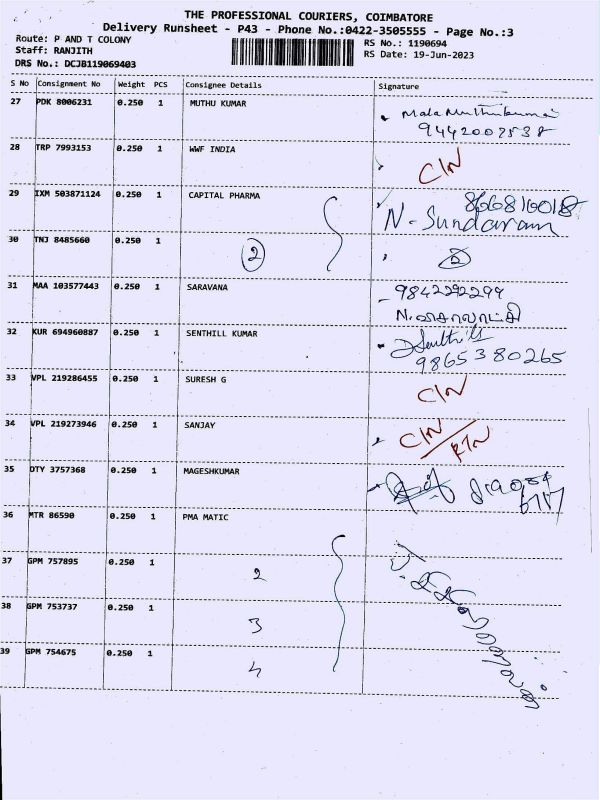 THE PROFESSIONAL COURIERS, COIMBATORE
Delivery Runsheet - P43 - Phone No.:0422-3505555 - Page No.:3
Route: P AND T COLONY
Staff: RANJITH
DRS No.: DCJB119069403
RS No.: 1190694
RS Date: 19-Jun-2023
S No Consignment No Weight PCS Consignee Details Signature
27 PDK 8006231 0.250 1 MUTHU KUMAR
Mala Muthukumar
9442007538
28 TRP 7993153 0.250 1 WWF INDIA C/N
29 IXM 503871124 0.250 1 CAPITAL PHARMA
N. Sundaram
30 TNJ 8485660 0.250 1 2 2
31 MAA 103577443 0.250 1 SARAVANA
9842292299
32 KUR 694960887 0.250 1 SENTHILL KUMAR
9865380265
33 VPL 219286455 0.250 1 SURESH G C/N
34 VPL 219273946 0.250 1 SANJAY C/N / RTN
35 OTY 3757368 0.250 1 MAGESHKUMAR
36 MTR 86590 0.250 1 PMA MATIC
37 GPM 757895 0.250 1 2
38 GPM 753737 0.250 1 3
39 GPM 754675 0.250 1 4